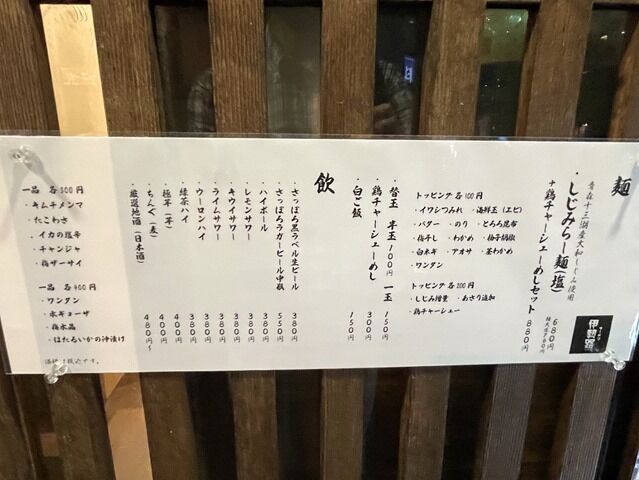 麺
青森十三湖産大和しじみ使用
・しじみらー麺(塩) 680円
+鶏チャーシューめしセット 880円
伊勢路
トッピング 各100円
・イワシつみれ ・海鮮玉(エビ)
・バター ・のり ・とろろ昆布
・梅干し ・わかめ ・柚子胡椒
・白ネギ ・アオサ ・茎わかめ
・ワンタン
トッピング 各200円
・しじみ増量 ・あさり追加
・鶏チャーシュー
・替玉 半玉100円 一玉 150円
・鶏チャーシューめし 300円
・白ご飯 150円
飲
・さっぽろ黒ラベル生ビール 380円
・さっぽろラガービール中瓶 550円
・ハイボール 380円
・レモンサワー 380円
・キウイサワー 380円
・ライムサワー 380円
・ウーロンハイ 380円
・緑茶ハイ 380円
・極芋(芋) 400円
・ちんぐ(麦) 400円
・厳選地酒(日本酒) 480円〜
一品 各300円
・キムチメンマ
・たこわさ
・イカの塩辛
・チャンジャ
・梅ザーサイ
一品 各400円
・ワンタン
・水ギョーザ
・梅水晶
・ほたるいかの沖漬け